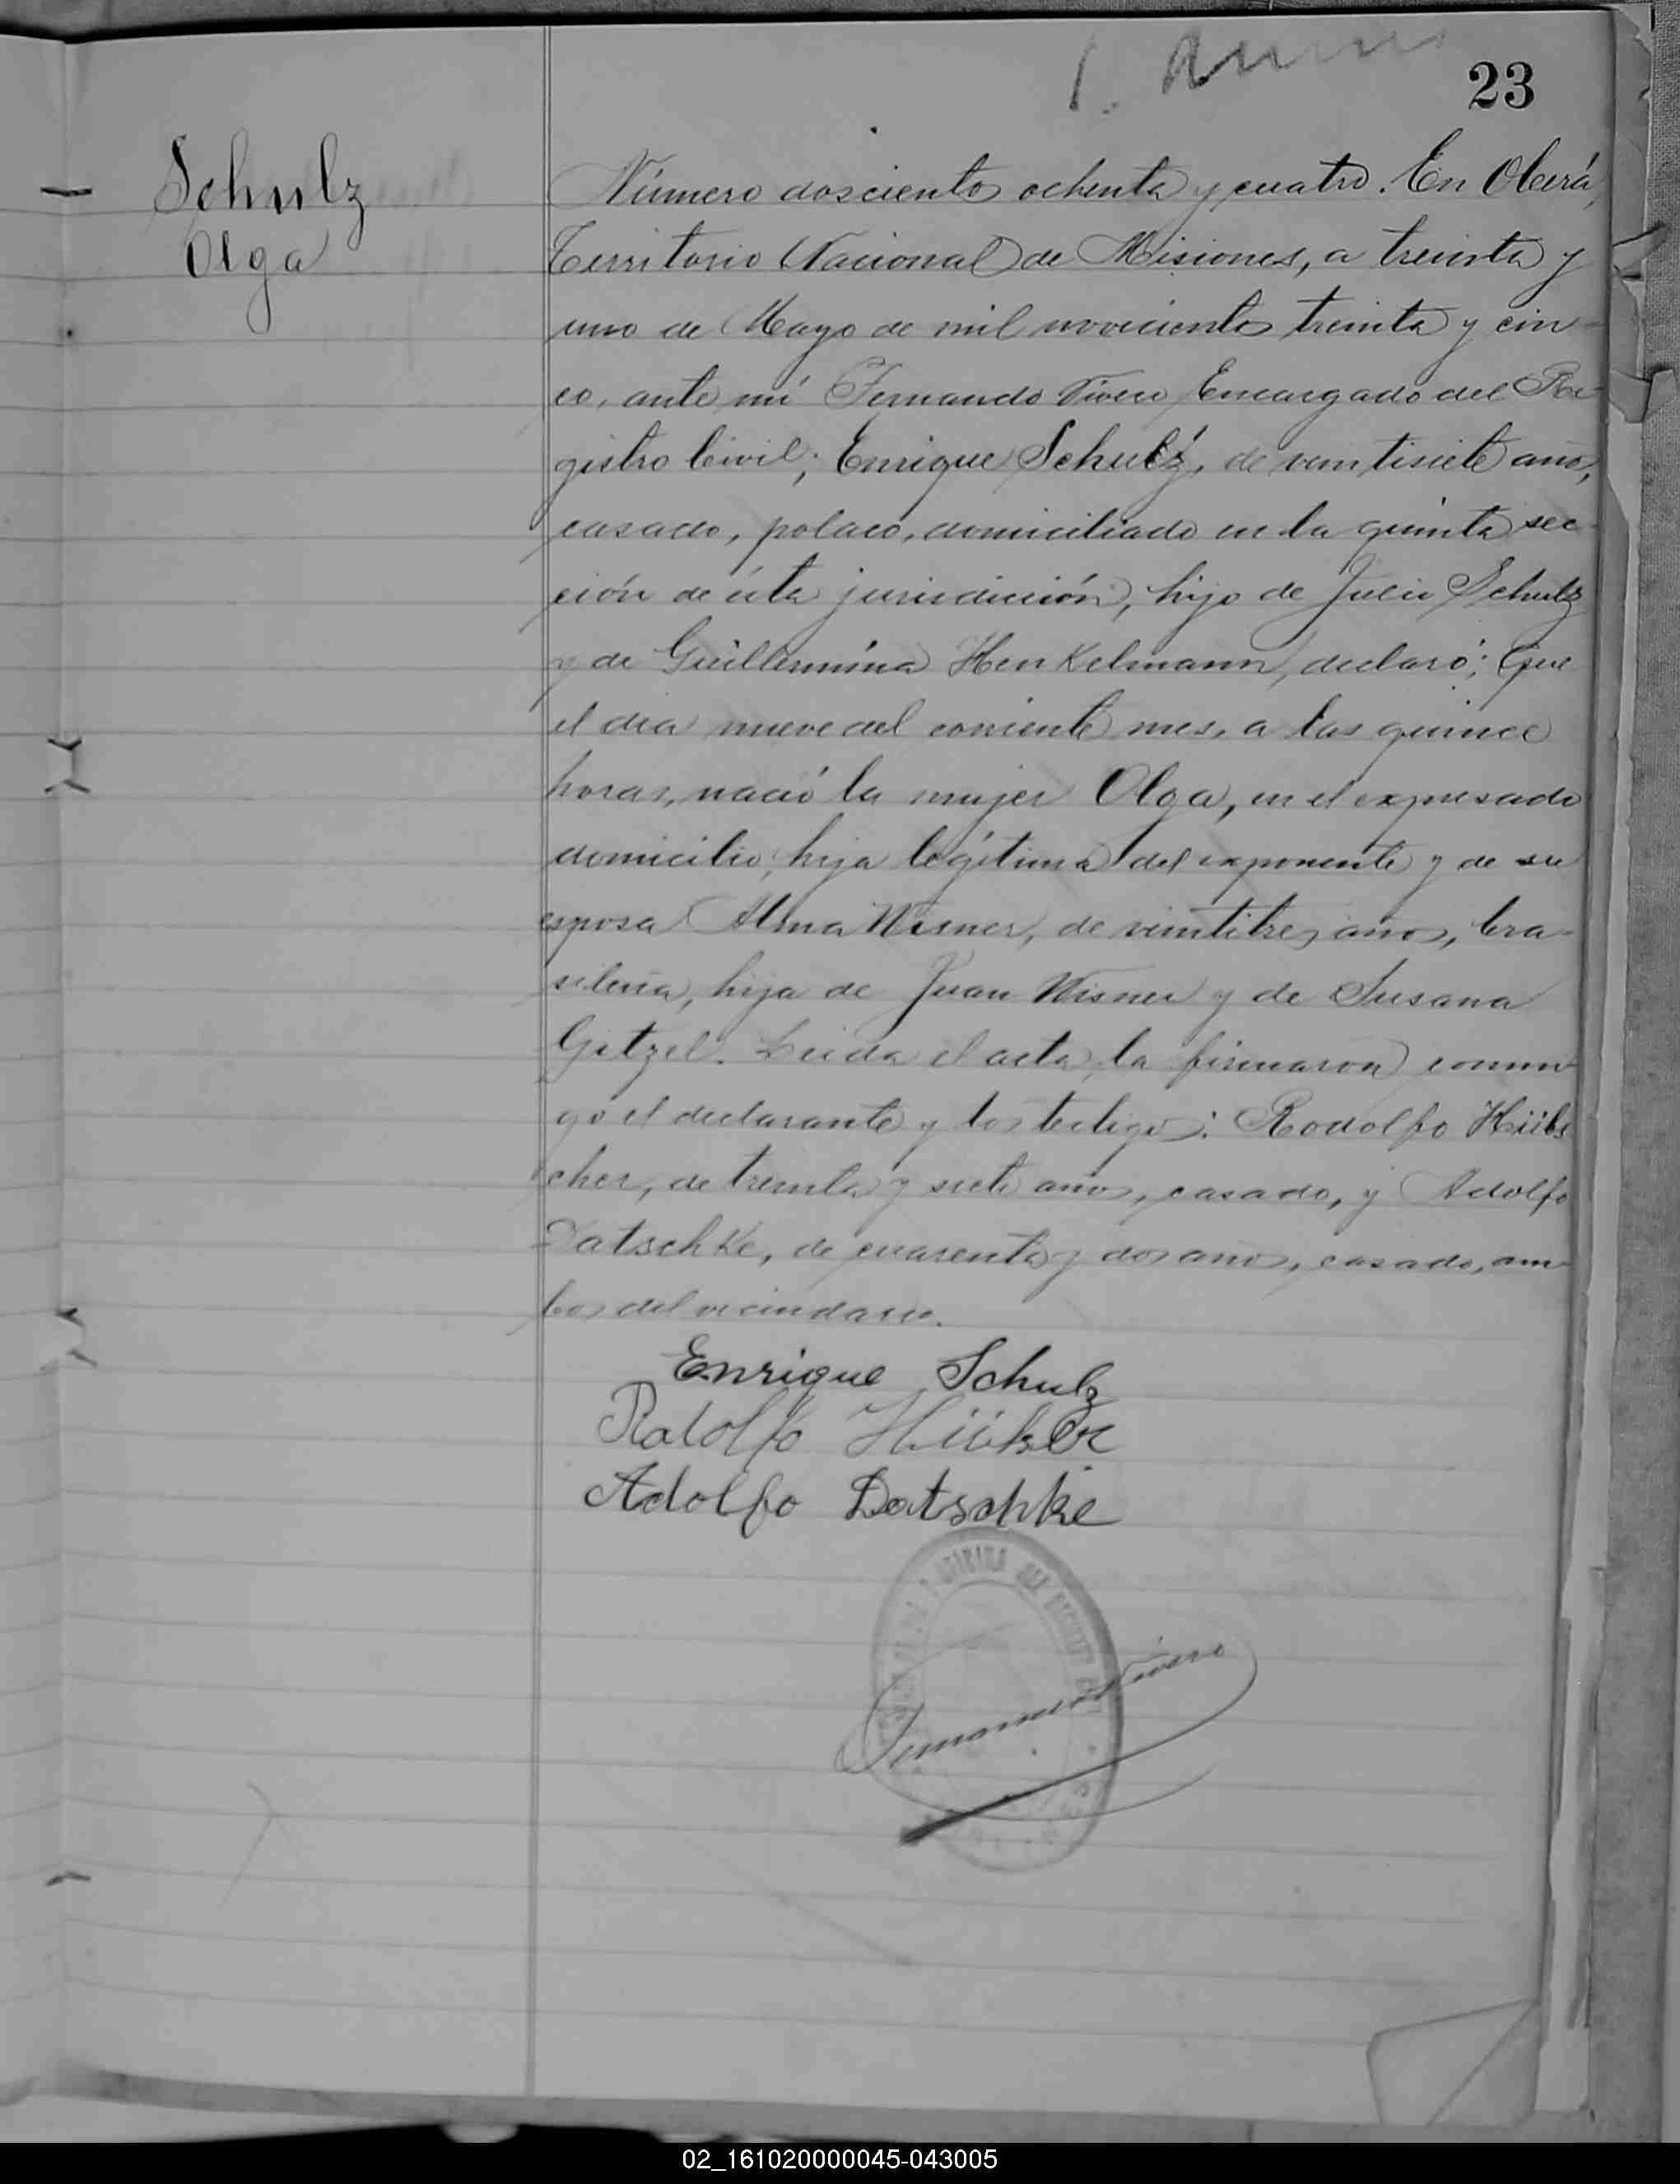 23
Schulz
Olga
Número doscientos ochenta y cuatro. En Oberá,
Territorio Nacional de Misiones, a treinta y
uno de Mayo de mil novecientos treinta y cin-
co, ante mí Fernando Vivero Encargado del Re-
gistro Civil; Enrique Schulz, de veintisiete años,
casado, polaco, domiciliado en la quinta sec-
ción de ésta jurisdicción, hijo de Julio Schulz
y de Guillermina Henkelmann, declaró; Que
el día nueve del corriente mes, a las quince
horas, nació la mujer Olga, en el expresado
domicilio, hija legítima del exponente y de su
esposa Alma Wisner, de veintitres años, bra-
sileña, hija de Juan Wisner y de Susana
Gitzel. Leida el acta, la firmaron conmi-
go el declarante y los testigos: Rodolfo Hübs
cher, de treinta y siete años, casado, y Adolfo
Datschke, de cuarenta y dos años, casado, am-
bos del vecindario.
Enrique Schulz
Rodolfo
Adolfo Datschke
Fernando Vivero
02_161020000045-043005